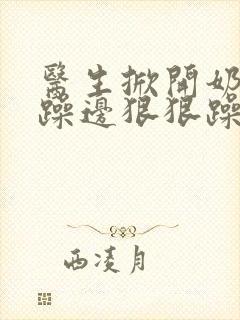 醫生掀開奶
躁邊狠狠躁
西凌月